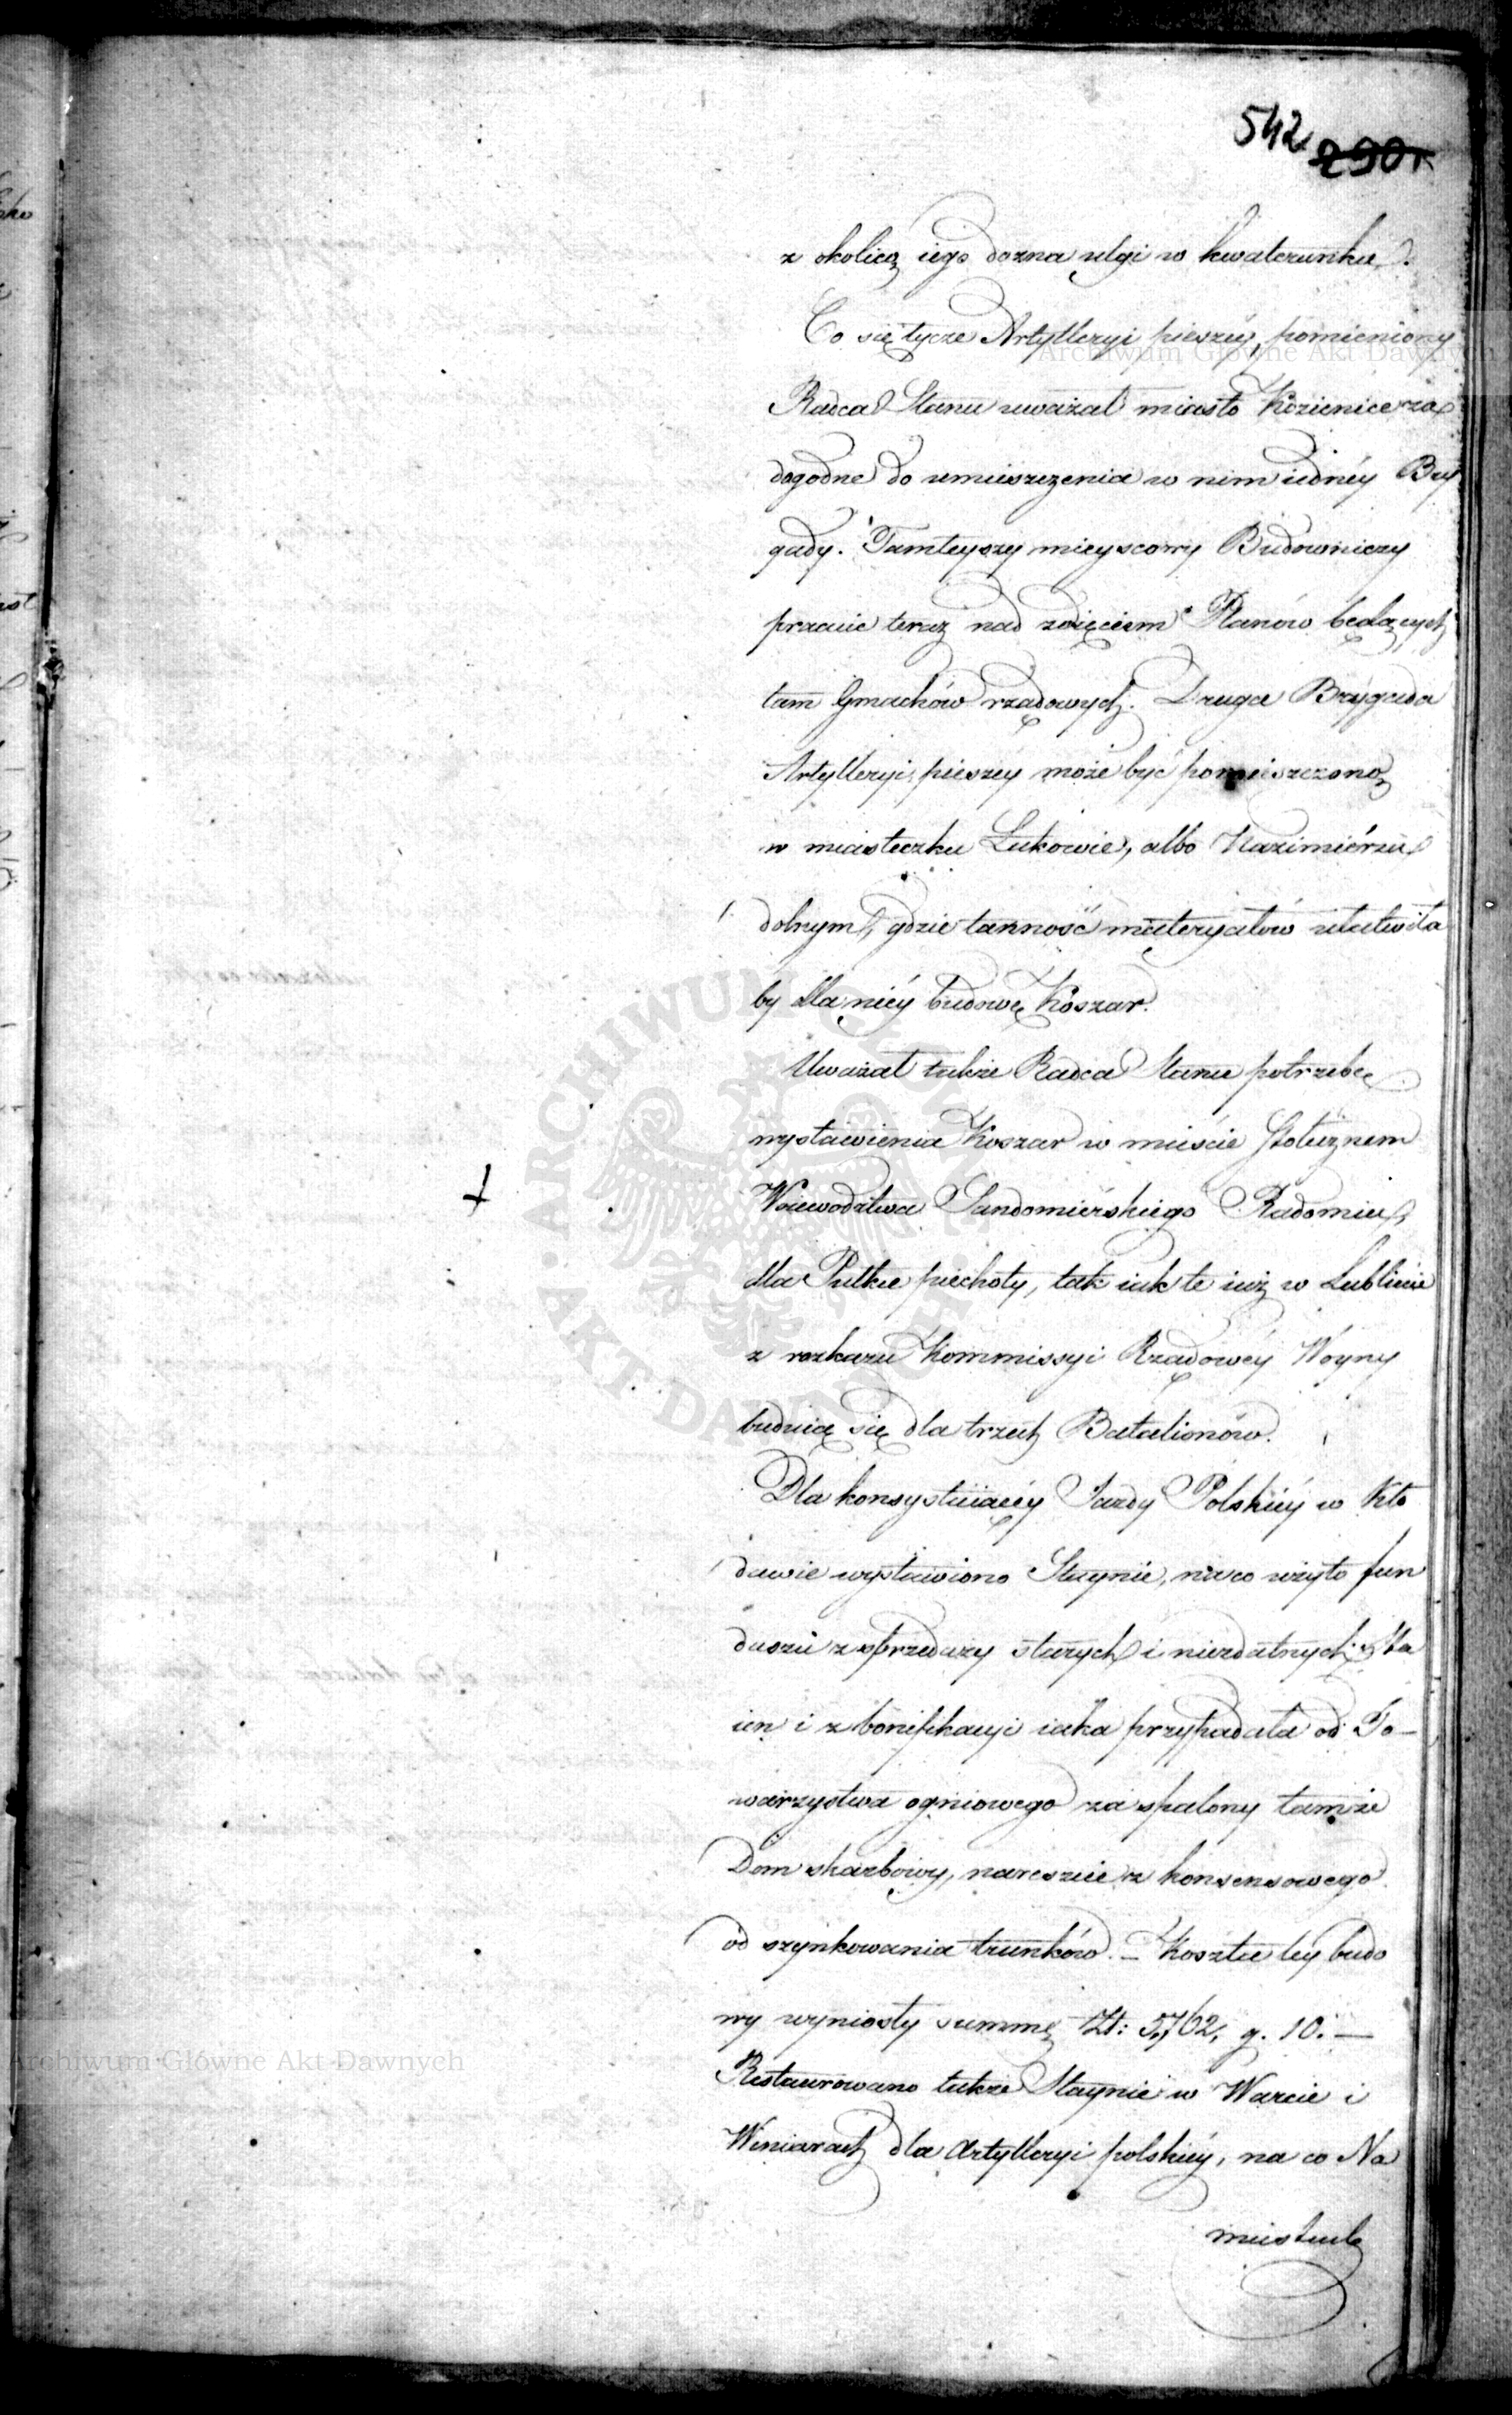 542 290r
z okolicą iego dozna ulgi w kwaterunku.
Co się tycze Artylleryi pieszéy, pomieniony
Radca Stanu uważał miasto Kozienice za
dogodne do umieszczenia w nim iednéy Bry
gady. Tamteyszy mieyscowy Budowniczy
pracuie teraz nad zdięciem Planów będących
tam Gmachów rządowych. Druga Brygada
Artylleryi pieszey może być pomieszczoną
w miasteczku Łukowie, albo Kazimiérzu
dolnym, gdzie tanność materyałów ułatwiła
by dla niéy budowę Koszar.
Uważał także Radca Stanu potrzebę
wystawienia Koszar w mieście Stołecznem
Woiewodztwa Sandomierskiego Radomiu,
dla Pułku piechoty, tak iak te iuż w Lublinie
z rozkazu Kommissyi Rządowéy Woyny
buduią się dla trzech Batalionów.
Dla konsystuiącéy Jazdy Polskiéy w Kło
dawie wystawiono Staynie, na co użyto fun
duszu z sprzedaży starych i niezdatnych Sta
ien i z bonifikacyi iaka przypadała od To-
warzystwa ogniowego za spalony tamże
Dom skarbowy, nareszcie z konsensowego
od szynkowania trunków. – Koszta téy budo
wy wyniosły summę Zł: 5,762, g. 10. —
Restaurowano także Staynie w Warcie i
Winiarach dla Artylleryi polskiéy, na co Na
miestnik
Archiwum Główne Akt Dawnych
Archiwum Główne Akt Dawnych
ARCHIWUM GŁÓWNE · AKT DAWNYCH ·